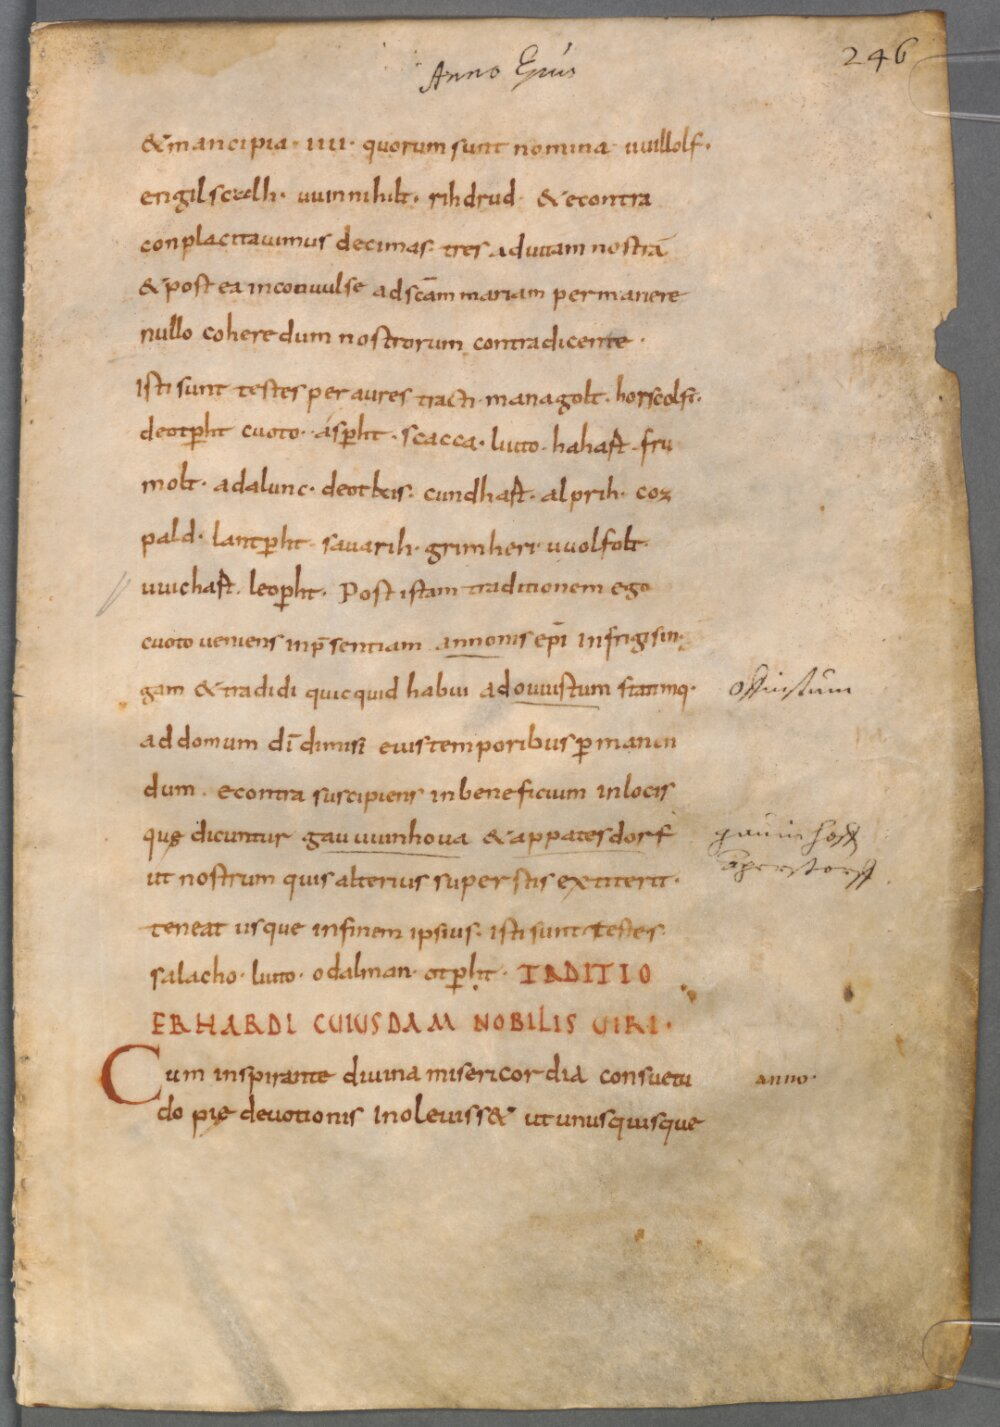 Anno Ep̄us
246
& mancipia · IIII · quorum sunt nomina · uuillolf ·
engilscalh · uuinnihilt · rihdrud · & econtra
conplacitauimus decimas tres ad uitam nostrā
& post ea inconuulse ad scām mariam permanere
nullo coheredum nostrorum contradicente ·
Isti sunt testes per aures tracti · managolt · horscolf ·
deotp̄ht cuoto · asp̄ht · scacca · liuto · hahaft · fru
molt · adalunc · deotleis · cundhaft · alprih · coz
pald · lantp̄ht · sauarih · grimheri · uuolfolt ·
uuichaft · leop̄ht · Post istam traditionem ego
cuoto ueniens inp̄sentiam annonis ep̄i in frigisin
gam & tradidi quicquid habui ad ouuistum statimq·
offinstum
ad domum dī dimisi eius temporibus p̱manen
dum · econtra suscipiens in beneficium in locis
quę dicuntur gauuuinhoua & appatesdorf
gauinhoff
aperstorff
ut nostrum quis alterius superstis extiterit ·
teneat usque in finem ipsius · isti sunt testes
salacho · liuto · odalman · otp̄ht · TRDITIO
ERHARDI CUIUSDAM NOBILIS UIRI ·
Cum inspirante diuina misericordia consuetu
anno ·
do pię deuotionis inoleuiss& ut unusquisque